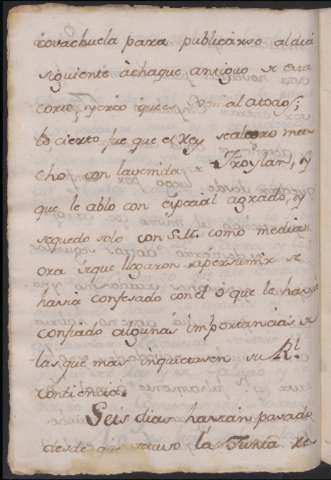 covachuela para publicarse al dia
siguiente achaque antiguo de esta
corte, y creo que es comun a todos;
lo cierto fue que el Rey se alegro mu
cho con la venida de Froylan, y
que le ablo con especial agrado, y
se quedo solo con S.M. como media
ora
havia confesado con el o que le havia
confado algunas importancias de
las que mas inquietaven su Rl.
contiencia.
Seis dias havian pasado
desde que tuuo la Junta de